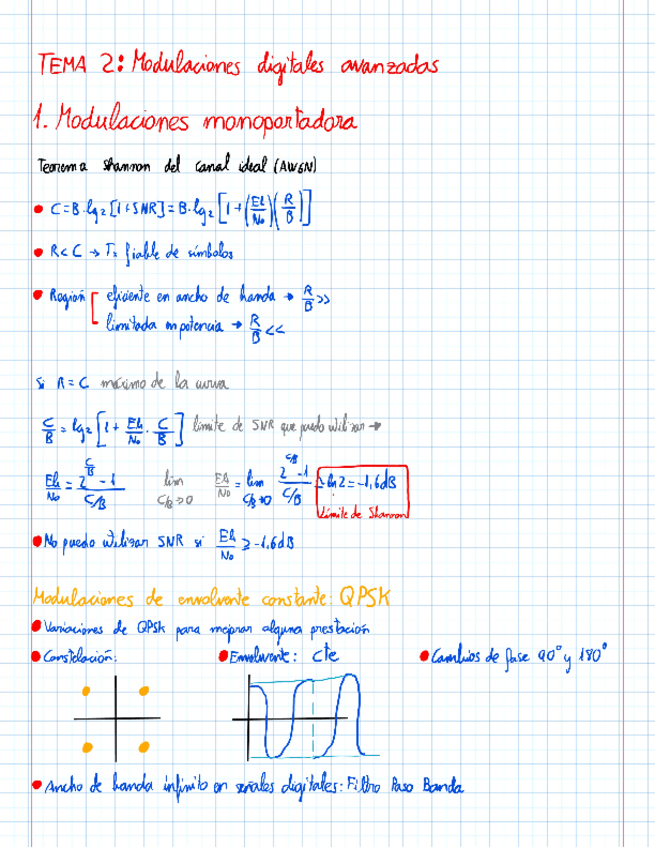 TEMA 2: Modulaciones digitales avanzadas
1. Modulaciones monoportadora
Teorema Shannon del canal ideal (AWGN)
• C=B·lg₂[1+SNR]=B·lg₂[1+(Eb/No)(R/B)]
• R<C → Tx fiable de símbolos
• Región [ eficiente en ancho de banda → R/B >>
limitada en potencia → R/B <<
Si R=C máximo de la curva
C/B = lg₂[1 + Eb/No · C/B] límite de SNR que puedo utilizar →
Eb/No = (2^(C/B) - 1)/(C/B) lim C/B→0 Eb/No = lim C/B→0 (2^(C/B) - 1)/(C/B) → ln 2 = -1,6dB
Límite de Shannon
• No puedo utilizar SNR si Eb/No ≥ -1,6dB
Modulaciones de envolvente constante: QPSK
• Variaciones de QPSK para mejorar alguna prestación
• Constelación: • Envolvente: cte • Cambios de fase 90° y 180°
• Ancho de banda infinito en señales digitales: Filtro Paso Banda